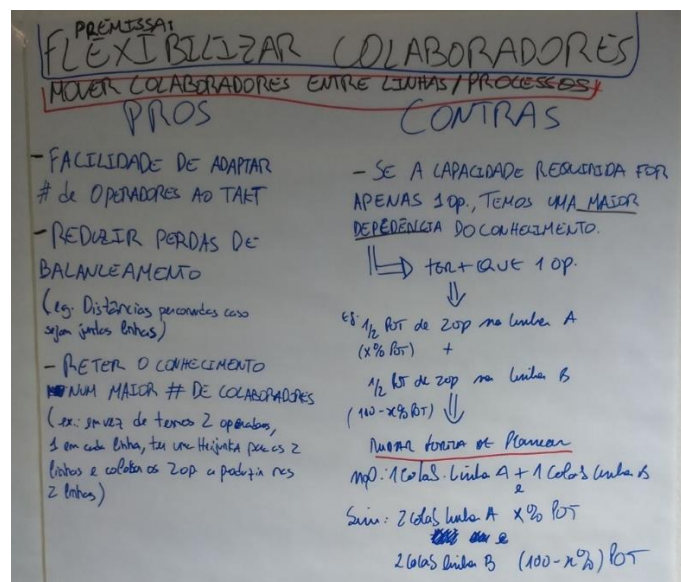 PREMISSA:
FLEXIBILIZAR COLABORADORES
MOVER COLABORADORES ENTRE LINHAS / PROCESSOS
PROS
- FACILIDADE DE ADAPTAR
# de OPERADORES AO TAKT
- REDUZIR PERDAS DE
BALANCEAMENTO
(eg. Distâncias percorridas caso
sejam juntas linhas)
- RETER O CONHECIMENTO
NUM MAIOR # DE COLABORADORES
(ex.: em vez de termos 2 operadores,
1 em cada linha, ter uma Heijunka para as 2
linhas e colocar os 2 op. a produzir nas
2 linhas)
CONTRAS
- SE A CAPACIDADE REQUERIDA FOR
APENAS 1 OP., TEMOS UMA MAIOR
DEPEDÊNCIA DO CONHECIMENTO.
⇒ TER + QUE 1 OP.
⇓
1/2 POT de 2 op na linha A
(x% POT) +
1/2 POT de 2 op na linha B
(100-x% POT) ⇓
MUDAR FORMA DE Planear
1 Colab. Linha A + 1 Colab Linha B
e
Sim: 2 Colab Linha A x% POT
e
2 Colab Linha B (100-x%) POT